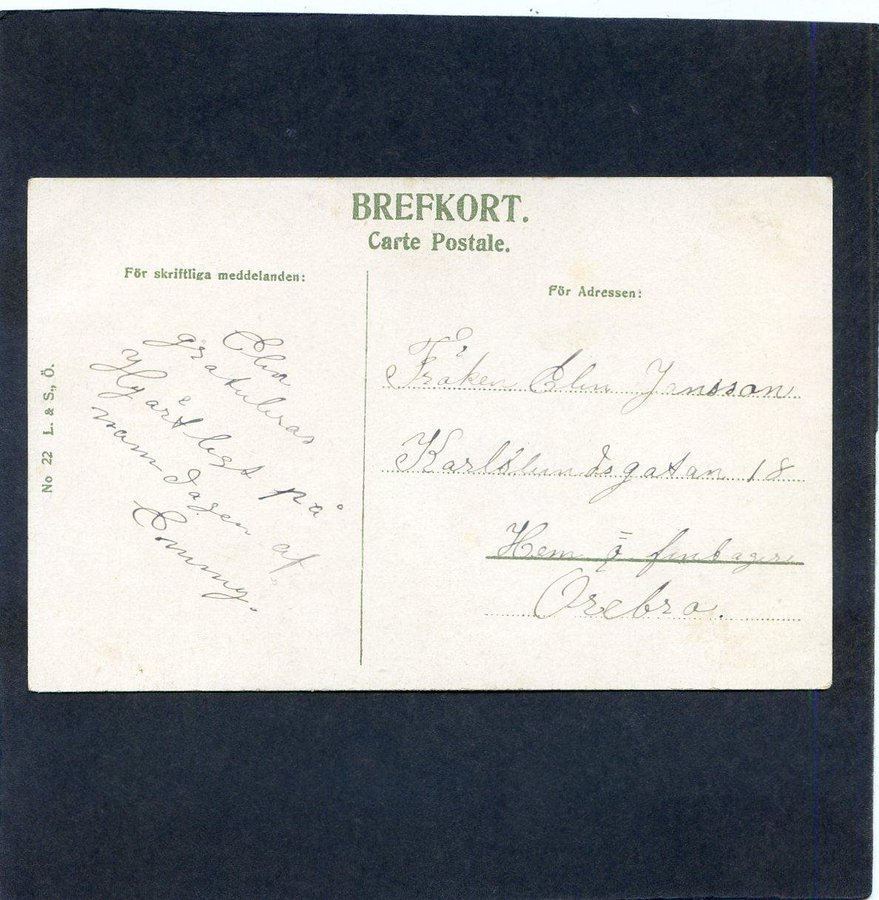 BREFKORT.
Carte Postale.
För skriftliga meddelanden:
För Adressen:
No 22 L. & S., Ö.
Elin
gratuleras
Hjärtligt på
namndagen af
Emmy.
Fröken Elin Jansson
Karlslundsgatan 18
Hem o finbageri
Örebro.